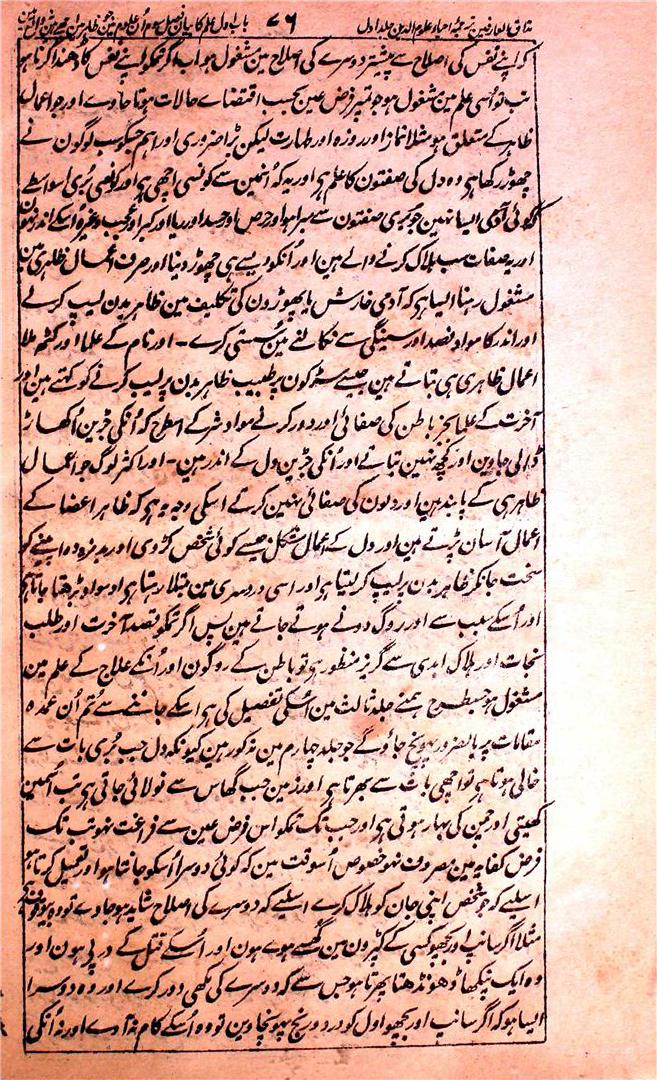 مذاق العارفین ترجمہ احیاء علوم الدین جلد اول ۷۶ باب اول علم کا بیان فصل سوم اُن علوم میں جو
کہ اپنے نفس کی اصلاح سے پیشتر دوسرے کی اصلاح مین مشغول ہو اب اگر تمکو اپنے نفس کا دھندا کرنا ہو
تب تو اُسی علم مین مشغول ہو جو تمپر فرض عین بحسب اقتضاے حالات ہوتا جاوے اور جو اعمال
ظاہر کے متعلق ہو مثلا نماز اور روزہ اور طہارت لیکن بڑا ضروری اور اہم جسکو سب لوگون نے
چھوڑ رکھا ہے وہ دل کی صفتون کا علم ہے اور یہ کہ اُنمین سے کونسی اچھی ہے اور کونسی بُری اسواسطے
کہ کوئی آدمی ایسا نہین جو بُری صفتون سے مبرا ہو اور حرص اور حسد اور ریا اور کبر اور عجب وغیرہ اُسکے اندر نہون
اور یہ صفات سب ہلاک کرنے والے ہین اور اُنکو ویسے ہی چھوڑ دینا اور صرف اعمال ظاہری مین
مشغول رہنا ایسا ہے کہ آدمی خارش یا پھوڑون کی تکلیف مین ظاہر بدن لیپ کرلے
اور اندر کا مواد فصد اور سینگی سے نکالنے مین سُستی کرے۔ اور نام کے علما اور کٹھ ملا
اعمال ظاہری ہی بتاتے ہین جیسے سڑکون پر طبیب ظاہر بدن پر لیپ کرنے کو کہتے ہین اور
آخرت کے علما بجز باطن کی صفائی اور دور کرنے مواد شر کے اسطرح کہ اُنکی جڑین اُکھاڑ
ڈالی جاوین اور کچھ نہین بتاتے اور اُنکی جڑین دل کے اندر ہین۔ اور اکثر لوگ جو اعمال
ظاہری کے پابند ہین اور دلون کی صفائی نہین کرتے اسکی وجہ یہ ہے کہ ظاہر اعضا کے
اعمال آسان پڑتے ہین اور دل کے اعمال مشکل جیسے کوئی شخص کڑوی اور بدمزہ دوا پینے کو
سخت جانکر ظاہر بدن پر لیپ کر لیتا ہے اور اسی دردسری مین مبتلا رہتا ہے اور مواد بڑھتا جاتا ہے
اور اُسکے سبب سے اور روگ دونے ہوتے جاتے ہین پس اگر تمکو قصد آخرت اور طلب
نجات اور ہلاک ابدی سے گریز منظور ہے تو باطن کے روگون اور اُنکے علاج کے علم مین
مشغول ہو جسطرح ہمنے جلد ثالث مین اُسکی تفصیل کی ہے اسکے جاننے سے تُم اُن عمدہ
مقامات پر بالضرور پہونچ جاؤگے جو جلد چہارم مین مذکور ہین کیونکہ دل جب بُری بات سے
خالی ہوتا ہے تو اچھی بات سے بھرتا ہے اور زمین جب گھاس سے نولائی جاتی ہے تب اُسمین
کھیتی اور چمن کی بہار ہوتی ہے اور جب تک تمکو اس فرض عین سے فراغت نہو تب تک
فرض کفایہ مین مصروف نہو خصوص اُسوقت مین کہ کوئی دوسرا اُسکو جانتا ہو اور تعمیل کرتا ہو
اسلیے کہ جو شخص اپنی جان کو ہلاک کرے اسلیے کہ دوسرے کی اصلاح شاید ہو جاوے تو وہ بیوقوف ہے
مثلا اگر سانپ اور بچھو کسی کے کپڑون مین گھُسے ہوے ہون اور اُسکے قتل کے درپی ہون اور
وہ ایک پنکھا ڈھونڈھتا پھرتا ہو جس سے کہ دوسرے کی مکھی دور کرے اور وہ دوسرا
ایسا ہو کہ اگر سانپ اور بچھو اول کو درد و رنج پہونچاوین تو وہ اُسکے کام نہ آوے اور نہ اُنکی